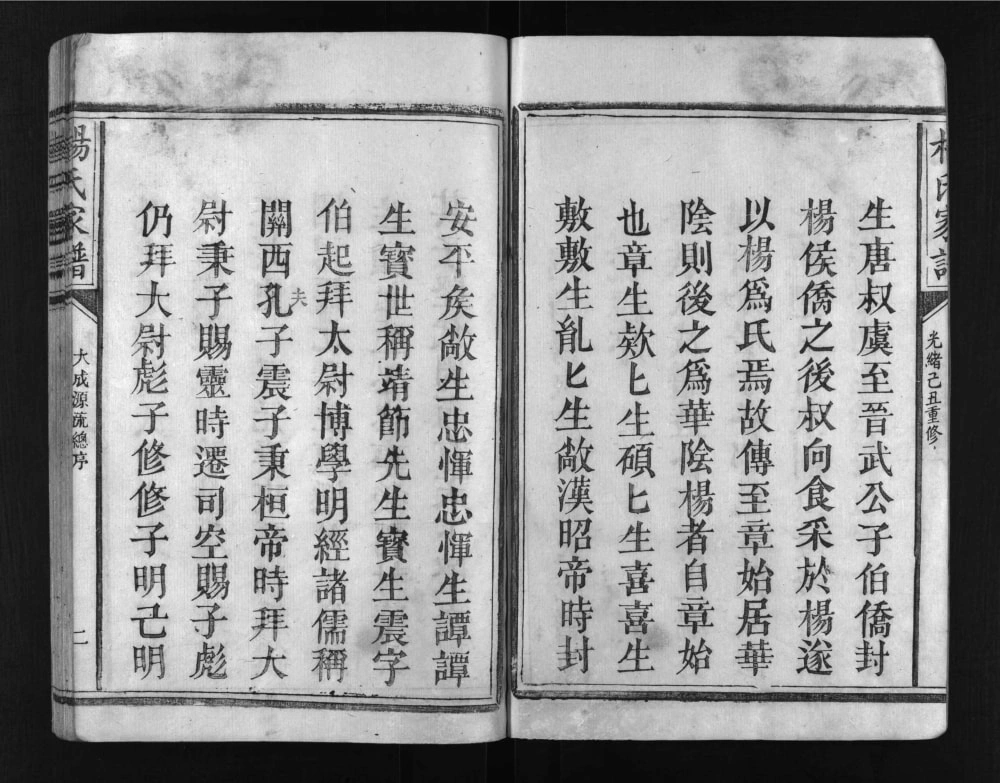 楊氏家譜
光緒己丑重修
生唐叔虞至晉武公子伯僑封
楊侯僑之後叔向食采於楊遂
以楊爲氏焉故傳至章始居華
陰則後之爲華陰楊者自章始
也章生欵匕生碩匕生喜喜生
敷敷生胤匕生敞漢昭帝時封
安平矦敞生忠惲忠惲生譚譚
生寳世稱靖節先生寳生震字
伯起拜太尉博學明經諸儒稱
關西孔夫子震子秉桓帝時拜大
尉秉子賜靈時遷司空賜子彪
仍拜大尉彪子修修子明己明
楊氏家譜
大成源流總序
二